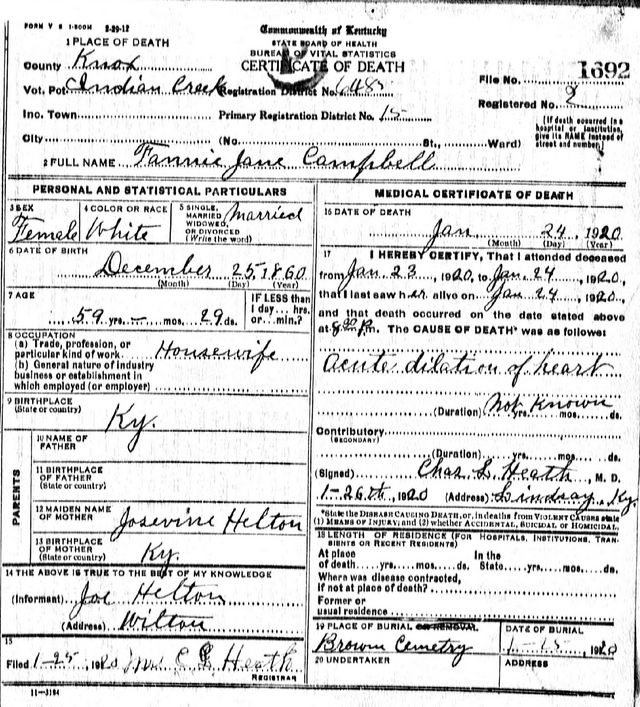 FORM V S 1-500M 2-29-12
Commonwealth of Kentucky
STATE BOARD OF HEALTH
BUREAU OF VITAL STATISTICS
CERTIFICATE OF DEATH
1 PLACE OF DEATH
County Knox
Vot. Pct. Indian Creek Registration District No. 648
File No. 1692
Inc. Town Primary Registration District No. 15
Registered No. 2
City (No. St., Ward)
[If death occurred in a hospital or institution, give its NAME instead of street and number.]
2 FULL NAME Fannie Jane Campbell
PERSONAL AND STATISTICAL PARTICULARS
3 SEX Female
4 COLOR OR RACE White
5 SINGLE, MARRIED WIDOWED, OR DIVORCED (Write the word) Married
6 DATE OF BIRTH
December 25 1860
(Month) (Day) (Year)
7 AGE
59 yrs. - mos. 29 ds.
IF LESS than 1 day... hrs. or... min.?
8 OCCUPATION
(a) Trade, profession, or particular kind of work Housewife
(b) General nature of industry business or establishment in which employed (or employer)
9 BIRTHPLACE
(State or country) Ky.
PARENTS
10 NAME OF FATHER
11 BIRTHPLACE OF FATHER (State or country)
12 MAIDEN NAME OF MOTHER Josevine Helton
13 BIRTHPLACE OF MOTHER (State or country) Ky.
14 THE ABOVE IS TRUE TO THE BEST OF MY KNOWLEDGE
(Informant) Joe Helton
(Address) Wilton
15
Filed 1-25, 1920 Mrs C S Heath
REGISTRAR
11-3184
MEDICAL CERTIFICATE OF DEATH
16 DATE OF DEATH
Jan 24 1920
(Month) (Day) (Year)
17 I HEREBY CERTIFY, That I attended deceased
from Jan 23, 1920, to Jan 24, 1920,
that I last saw her alive on Jan 24, 1920,
and that death occurred on the date stated above
at m. The CAUSE OF DEATH* was as follows:
Acute dilation of heart
(Duration) Not Known yrs. mos. ds.
Contributory
(SECONDARY)
(Duration) yrs. mos. ds.
(Signed) Chas S Heath, M. D.
1-26th, 1920 (Address) Lindsay, Ky.
*State the DISEASE CAUSING DEATH, or, in deaths from VIOLENT CAUSES state
(1) MEANS OF INJURY; and (2) whether ACCIDENTAL, SUICIDAL OR HOMICIDAL
18 LENGTH OF RESIDENCE (FOR HOSPITALS, INSTITUTIONS, TRANSIENTS OR RECENT RESIDENTS)
At place of death yrs. mos. ds. In the State yrs. mos. ds.
Where was disease contracted,
if not at place of death?
Former or
usual residence
19 PLACE OF BURIAL OR REMOVAL
Brown Cemetry
DATE OF BURIAL
1920
20 UNDERTAKER
ADDRESS